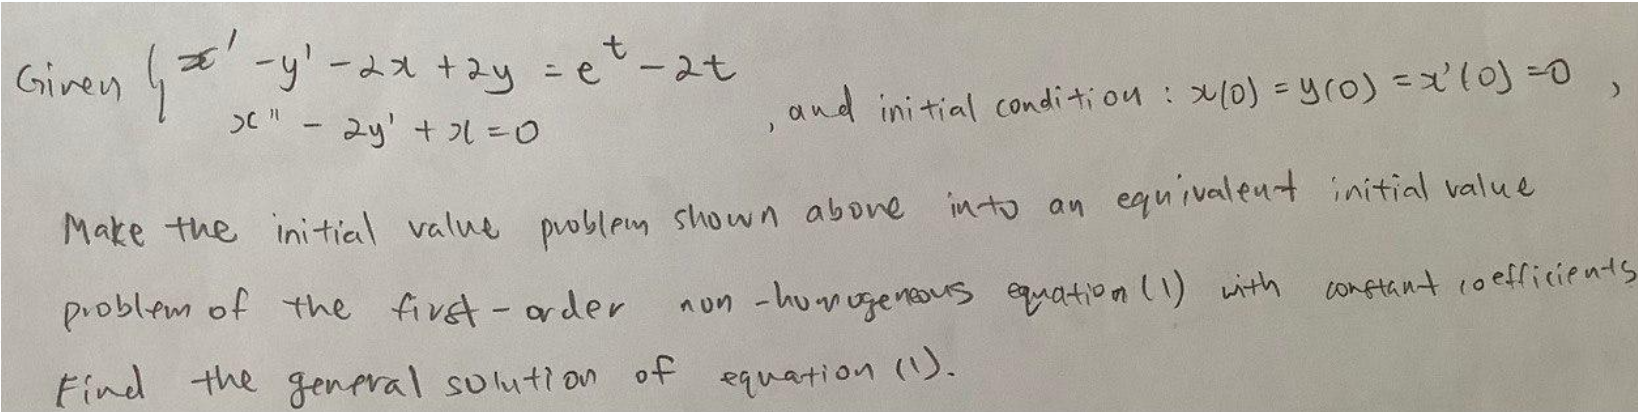 Given { x' - y' - 2x + 2y = e^t - 2t
x'' - 2y' + x = 0 , and initial condition : x(0) = y(0) = x'(0) = 0 ,
Make the initial value problem shown above into an equivalent initial value
problem of the first-order non-homogeneous equation (1) with constant coefficients
Find the general solution of equation (1).